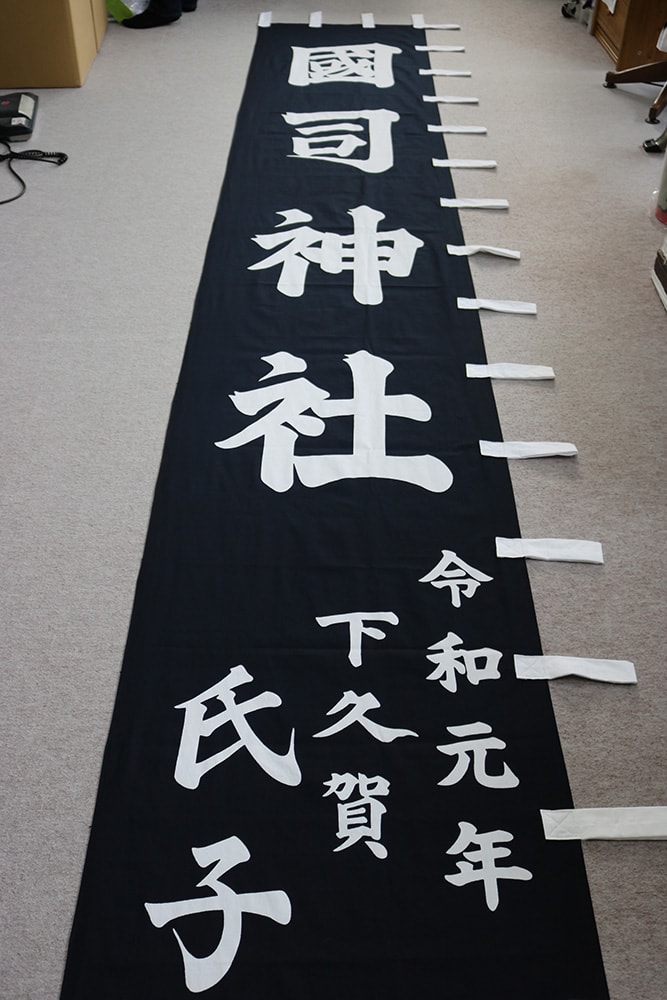 國司神社
令和元年
下久賀
氏子